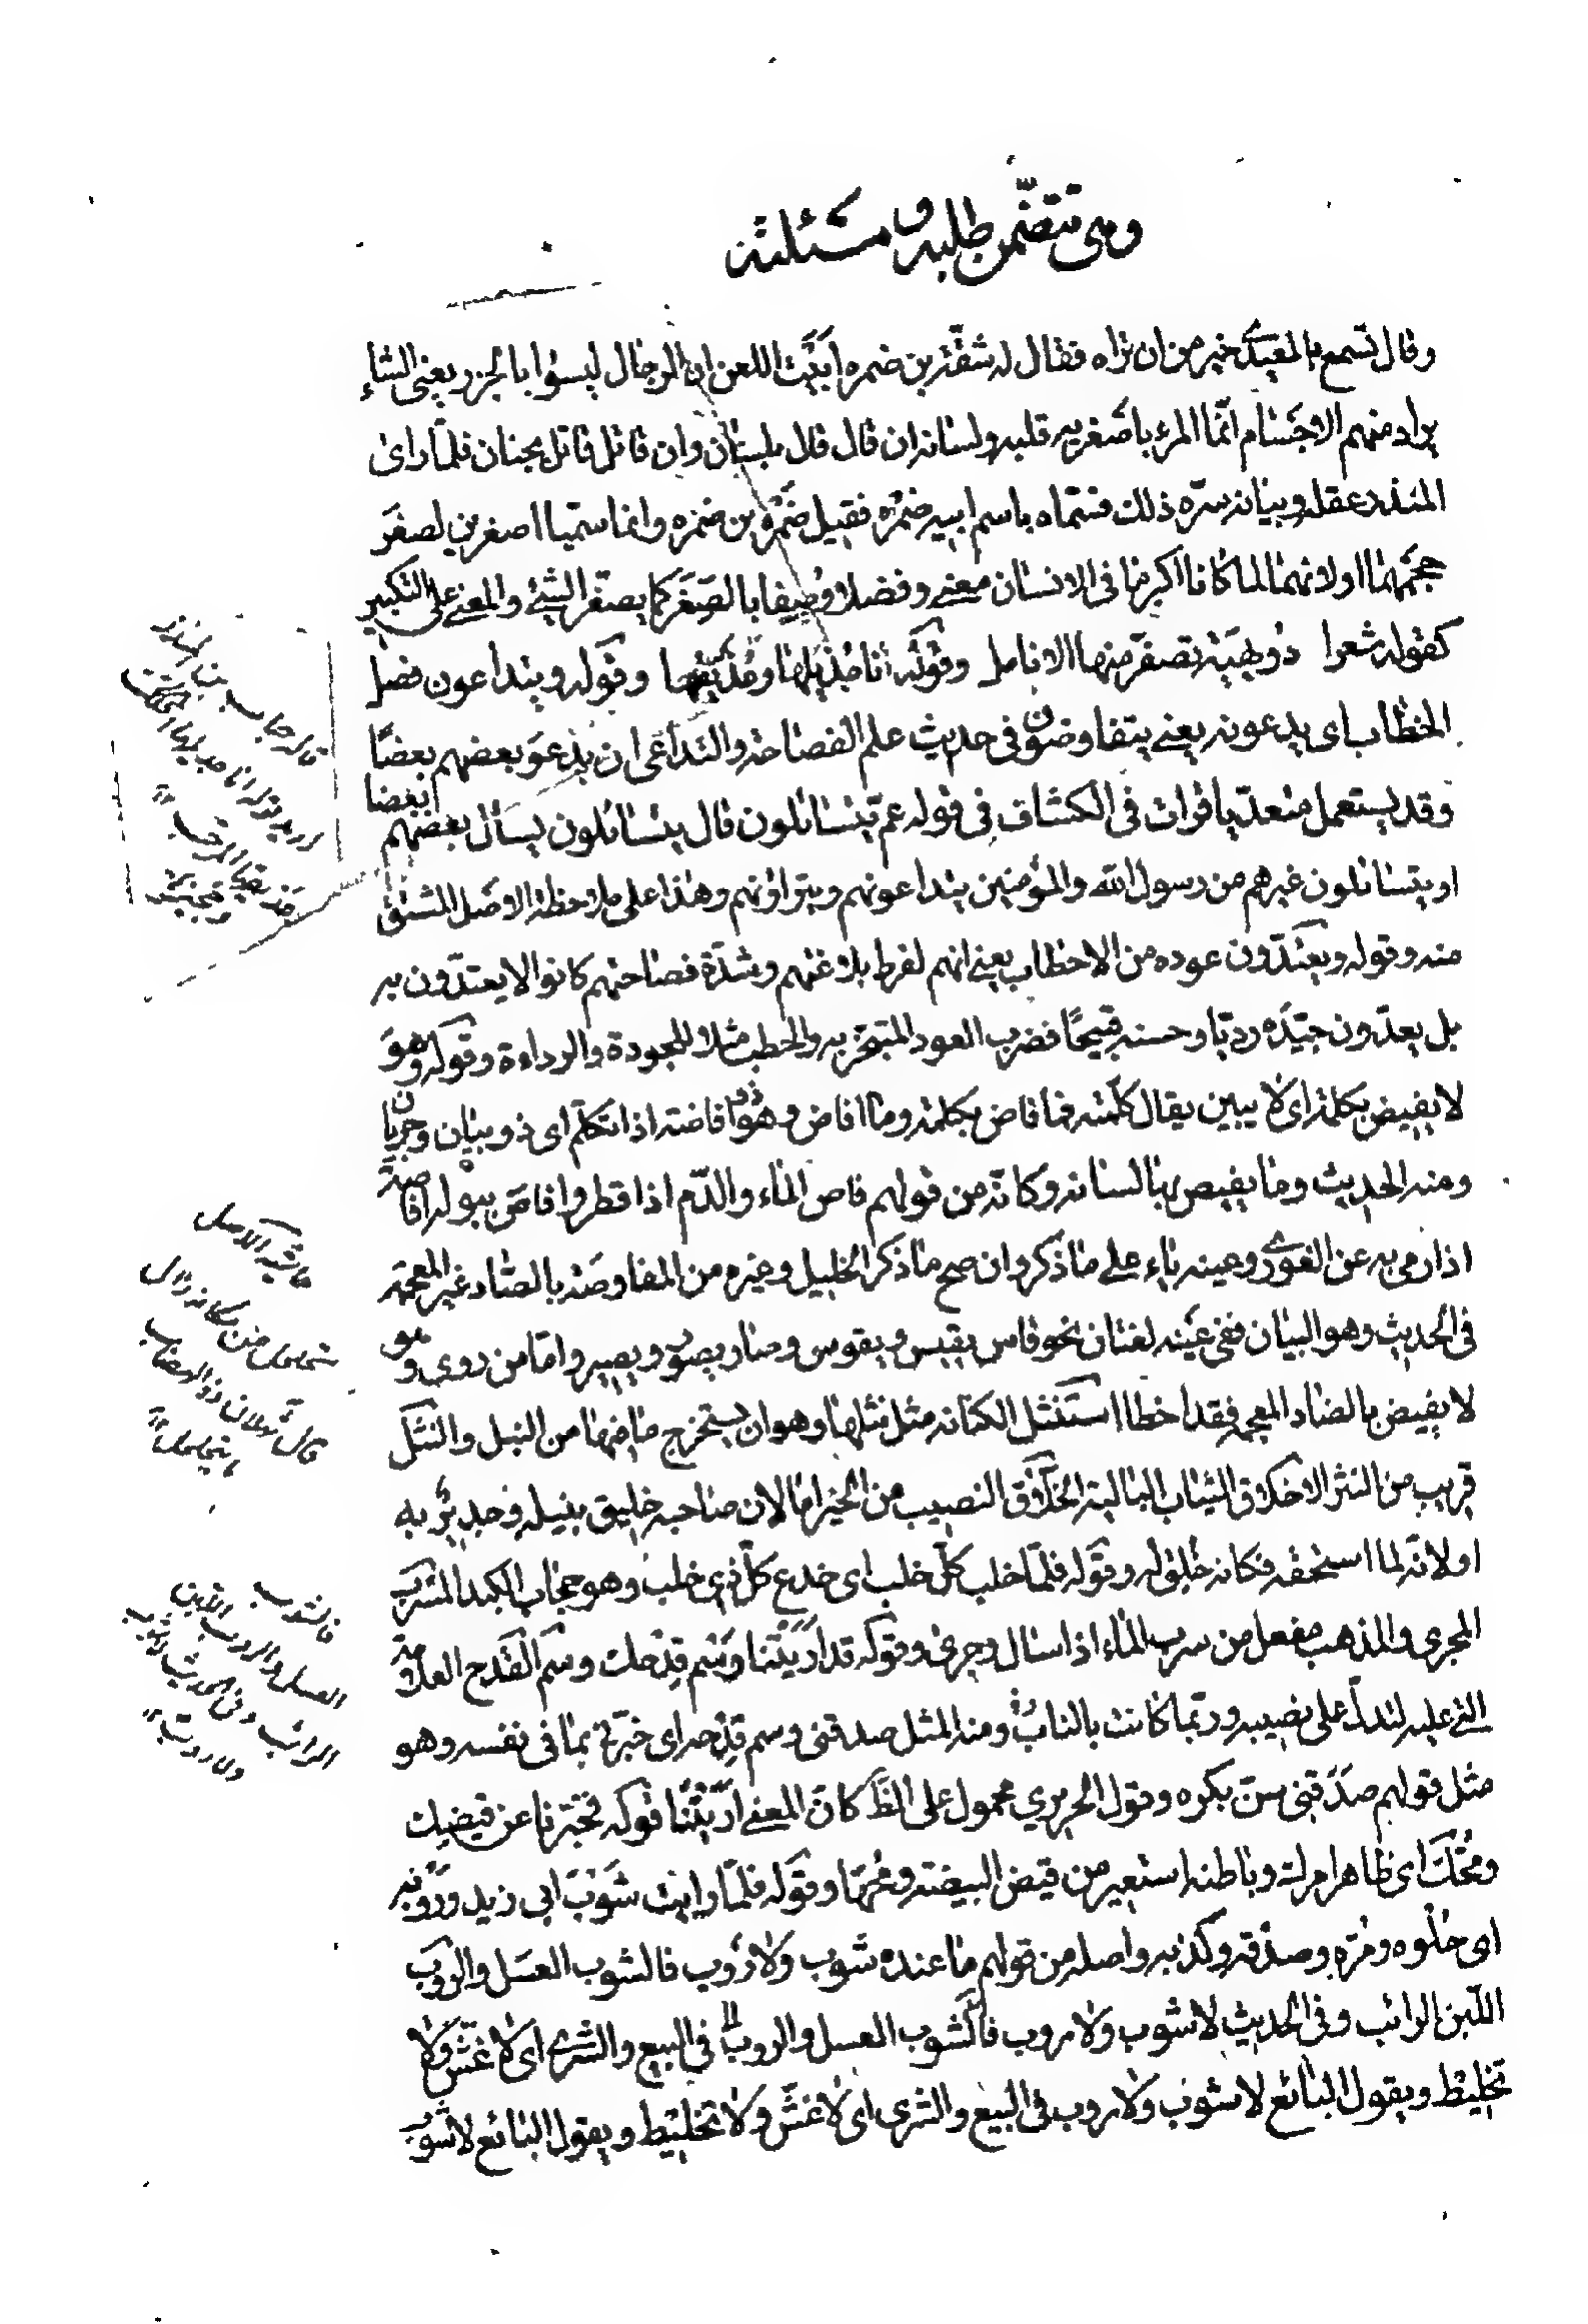 وهى تتضمّن طلبه و مسئلته
وقال تسمع بالمعيدّى خير من ان تراه فقال له شقّة بن ضمره ابيت اللعن ان الرجال ليسوا بالجزر يعنى الشاء
يراد منهم الاجسام انّما المرء باصغريه قلبه ولسانه ان قال قال بلسان وان قاتل قاتل بجنان فلمّا راى
المنذر عقله وبيانه سرّه ذلك فسمّاه باسم ابيه ضمره فقيل ضمرة بن ضمره وانما سمّيا اصغرين لصغر
حجمهما اولانهما لما كانا اكبر ما فى الانسان معنى وفضلا وصفا بالصغر كما يصغّر الشئ والمعنى على التكبير
كقوله شعرا دويهية تصفرّ منها الانامل وقوله انا جذيلها وعذيقها وقوله ويتداعون فصل
الخطاب اى يدعونه يعنى يتفاوضون فى حديث علم الفصاحة والتداعى ان يدعو بعضهم بعضا
وقد يستعمل متعدّيا قرات فى الكشاف فى قوله عمّ يتسائلون قال يتسائلون يسأل بعضهم بعضا
او يتسائلون غيرهم من رسول الله والمؤمنين يتداعونهم ويتراؤنهم وهذا على ملاحظة الاصل المشتق
منه وقوله ويعتدّون عوده من الاحطاب يعنى انهم لفرط بلاغتهم وشدّة فصاحتهم كانوا لا يعتدّون به
بل يعدّون جيّده رديّا وحسنه قبيحًا فضرب العود المتبخّر به والحطب مثلا للجودة والرداءة وقوله وهو
لا يفيص بكلمة اى لا يبين يقال كلّمته فما فاص بكلمة وما افاص وهو ذو افاصة اذا تكلّم اى ذو بيان وجريان
ومنه الحديث وما يفيص بها لسانه وكانّه من قولهم فاص الماء والدّم اذا قطر وافاص ببوله افاصة
اذا رمى به عن الغورى وعينه ياء على ما ذكر وان صح ما ذكر الخليل وغيره من المفاوصة بالصاد غير المعجمة
فى الحديث وهو البيان ففى عينه لغتان نحو قاس يقيس ويقوس وصار يصور ويصير وامّا من روى وهو
لا يفيض بالضاد المعجمه فقد اخطا استنثل الكنانه مثل نثلها وهو ان يستخرج ما فيها من النبل والنثل
قريب من النثر الاخلاق الثياب البالية الخلاق النصيب من الخير امّا لان صاحبه خليق بنيله وجدير به
او لانّه لما استحقه فكانه خلق له وقوله فلمّا خلب كلّ خلب اى خدع كلّ ذى خلب وهو حجاب الكبد المسرب
المجرى والمذهب مفعل من سرب الماء اذا سال وجرى وقوله قد اريتنا وسم قدحك وسم القدح العلامة
التى عليه لتدلّ على نصيبه وربّما كانت بالنار ومنه المثل صدقنى وسم قدحه اى خبّرنى بما فى نفسه وهو
مثل قولهم صدقنى سنّ بكره وقول الحريرى محمول على الظاهر كانّ المعنى اريتنا قوله فخبّرنا عن قيضك
ومحّك اى ظاهر امرك وباطنه استعير من قيض البيضة ومحّها وقوله فلمّا رايت شوب ابى زيد وروبه
اى حلوه ومرّه وصدقه وكذبه واصله من قولهم ما عنده شوب ولا روب فالشوب العسل والروب
اللبن الرائب وفى الحديث لا شوب ولا روب فالشوب العسل والروب فى البيع والشرى اى لا غشّ ولا
تخليط ويقول البائع لا شوب ولا روب فى البيع والشرى اى لا غشّ ولا تخليط ويقول البائع لا شوب
فالشوب
العسل والروب اللبن
الرائب وفى الحديث لا شوب
ولا روب